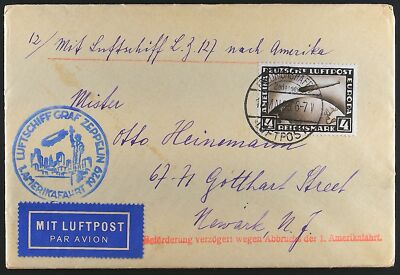 12/ Mit Luftschiff L.Z 127 nach Amerika
DEUTSCHE LUFTPOST
EUROPA
AMERIKA
4 REICHSMARK 4
LUFTPOST
Mister
Otto Heinemann
67-71 Gotthart Street
Newark, N.J.
LUFTSCHIFF GRAF ZEPPELIN
1. AMERIKAFAHRT 1929
MIT LUFTPOST
PAR AVION
Beförderung verzögert wegen Abbruchs der 1. Amerikafahrt.